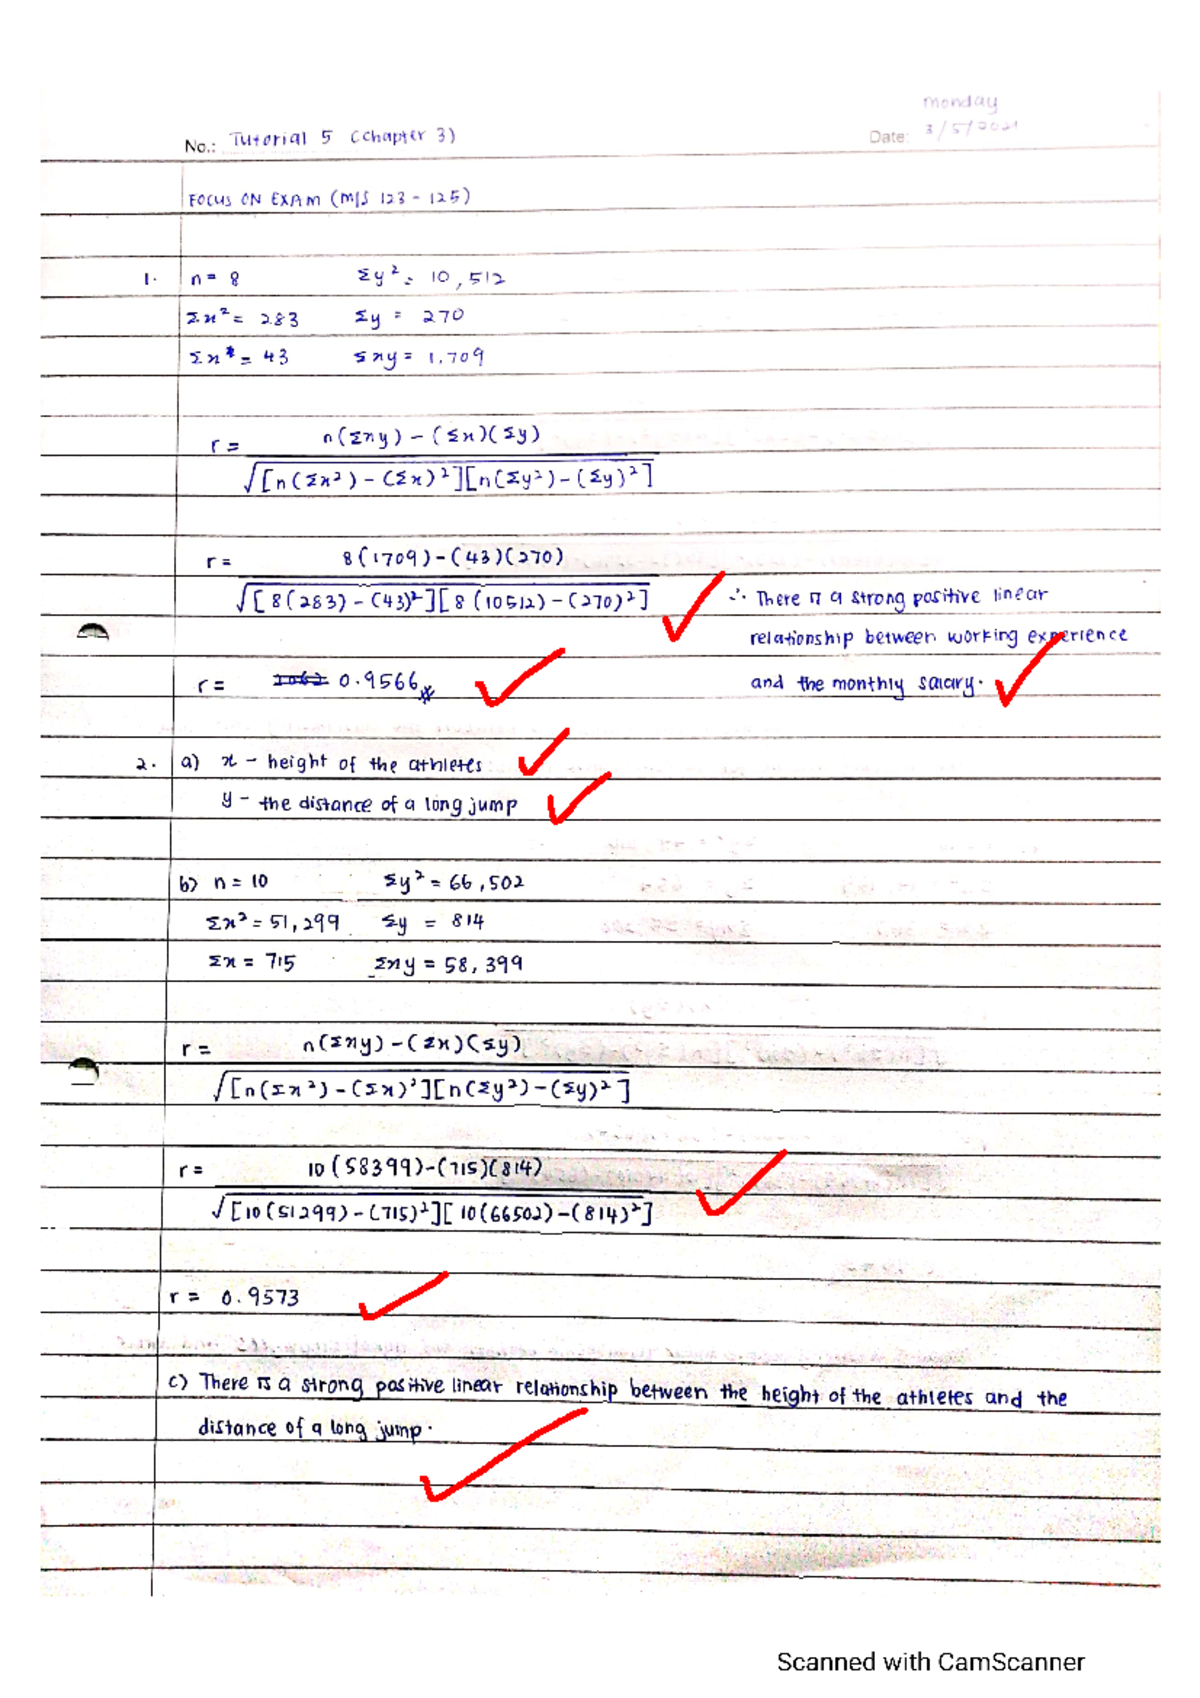 monday
No.: Tutorial 5 (Chapter 3) Date: 3/5/2021
FOCUS ON EXAM (M/S 123 - 125)
1. n = 8 Σy² = 10,512
Σx² = 283 Σy = 270
Σx = 43 Σxy = 1,709
r = n(Σxy) - (Σx)(Σy)
√[n(Σx²) - (Σx)²][n(Σy²) - (Σy)²]
r = 8(1709) - (43)(270)
√[8(283) - (43)²][8(10512) - (270)²]
∴ There is a strong positive linear
relationship between working experience
r = 0.9566 and the monthly salary.
2. a) x - height of the athletes
y - the distance of a long jump
b) n = 10 Σy² = 66,502
Σx² = 51,299 Σy = 814
Σx = 715 Σxy = 58,399
r = n(Σxy) - (Σx)(Σy)
√[n(Σx²) - (Σx)²][n(Σy²) - (Σy)²]
r = 10(58399) - (715)(814)
√[10(51299) - (715)²][10(66502) - (814)²]
r = 0.9573
c) There is a strong positive linear relationship between the height of the athletes and the
distance of a long jump.
Scanned with CamScanner